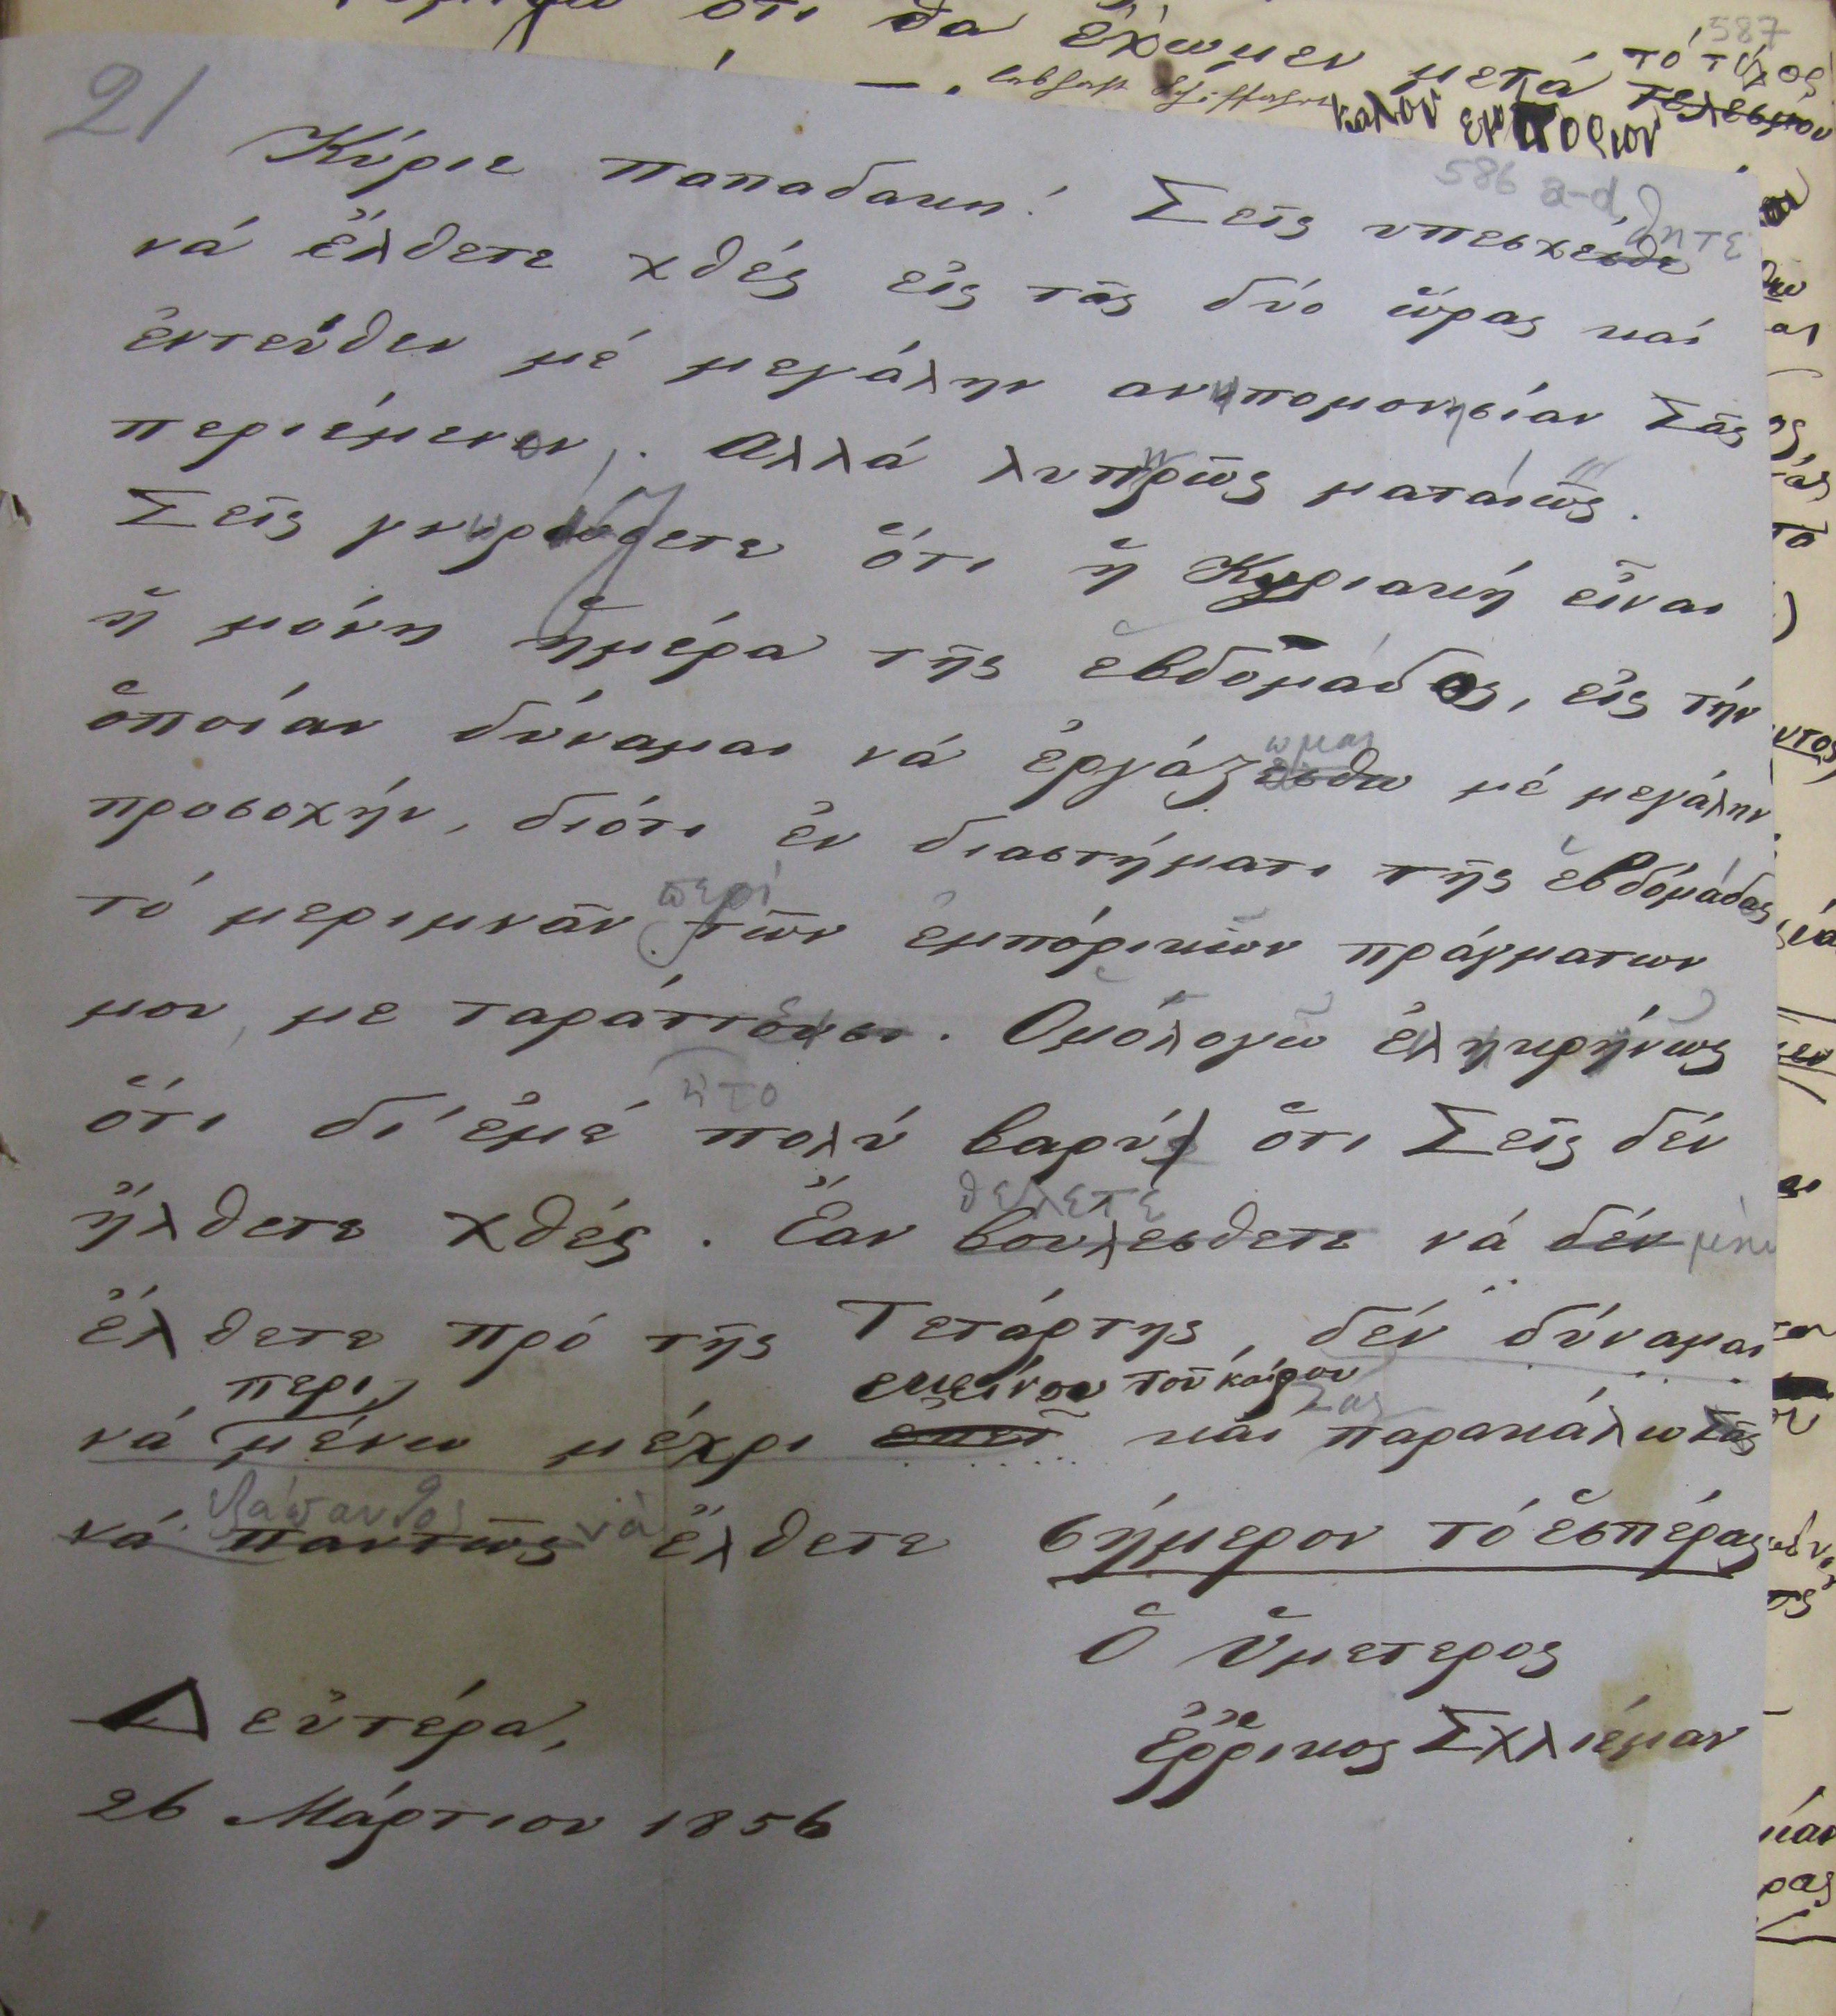 ὅτι θὰ ἔχωμεν μετὰ τό τέλος
587
καλὸν ἐμπόριον
21
586 a-d
Κύριε Παπαδακη! Σεῖς υπεσχέσθε θητε
νά ἔλθετε χθές εἰς τάς δύο ὥρας καί
ἐντεῦθεν μέ μεγάλην ανυπομονησίαν Σᾶς
περιέμενον. Αλλά λυπηρῶς ματαιῶς.
Σεῖς γνωρίζετε ὅτι ἡ Κυριακή εἶναι
ἡ μόνη ἡμέρα τῆς ἑβδομάδος, εἰς τήν
ὁποίαν δύναμαι νά ἐργάζεσθω ωμαι μέ μεγάλην
προσοχήν, διότι ἐν διαστήματι τῆς ἑβδομάδος
τό μεριμνᾶν περί τῶν ἐμπόρικῶν πράγματων
μου με ταράττουσι. Ὁμόλογῶ ἐλικρήνῶς
ὅτι δι' ἐμέ ἦτο πολύ βαρύ ὅτι Σεῖς δέν
ἤλθετε χθές. Ἐαν βουλεσθετε θέλετε νά δέν μὴν
ἔλθετε πρό τῆς Τετάρτης, δέν δύναμαι
νά περι μένω μέχρι ἐκεῖ ἐκείνου τοῦ καίρου καί Σας παρακάλω Σᾶς
νά παντῶς ἐξάπαντος νὰ ἔλθετε σήμερον τό ἑσπέρας
Ὁ ὑμετερος
Ἐῤῥικος Σχλιέμαν
Δεὐτέρα,
26 Μάρτιου 1856